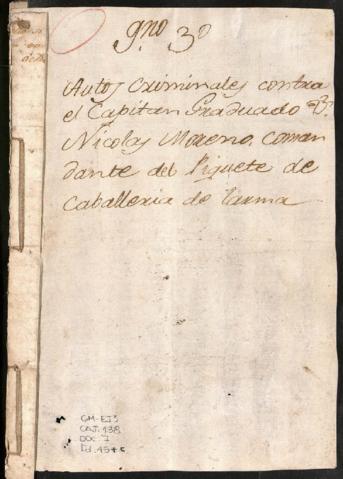 qno 3º
Autos Criminales contra
el Capitan Graduado Dn.
Nicolas Moreno, Coman
dante del Piquete de
Caballeria de Tarma
GM-EJ3
CAJ. 138
DOC. 7